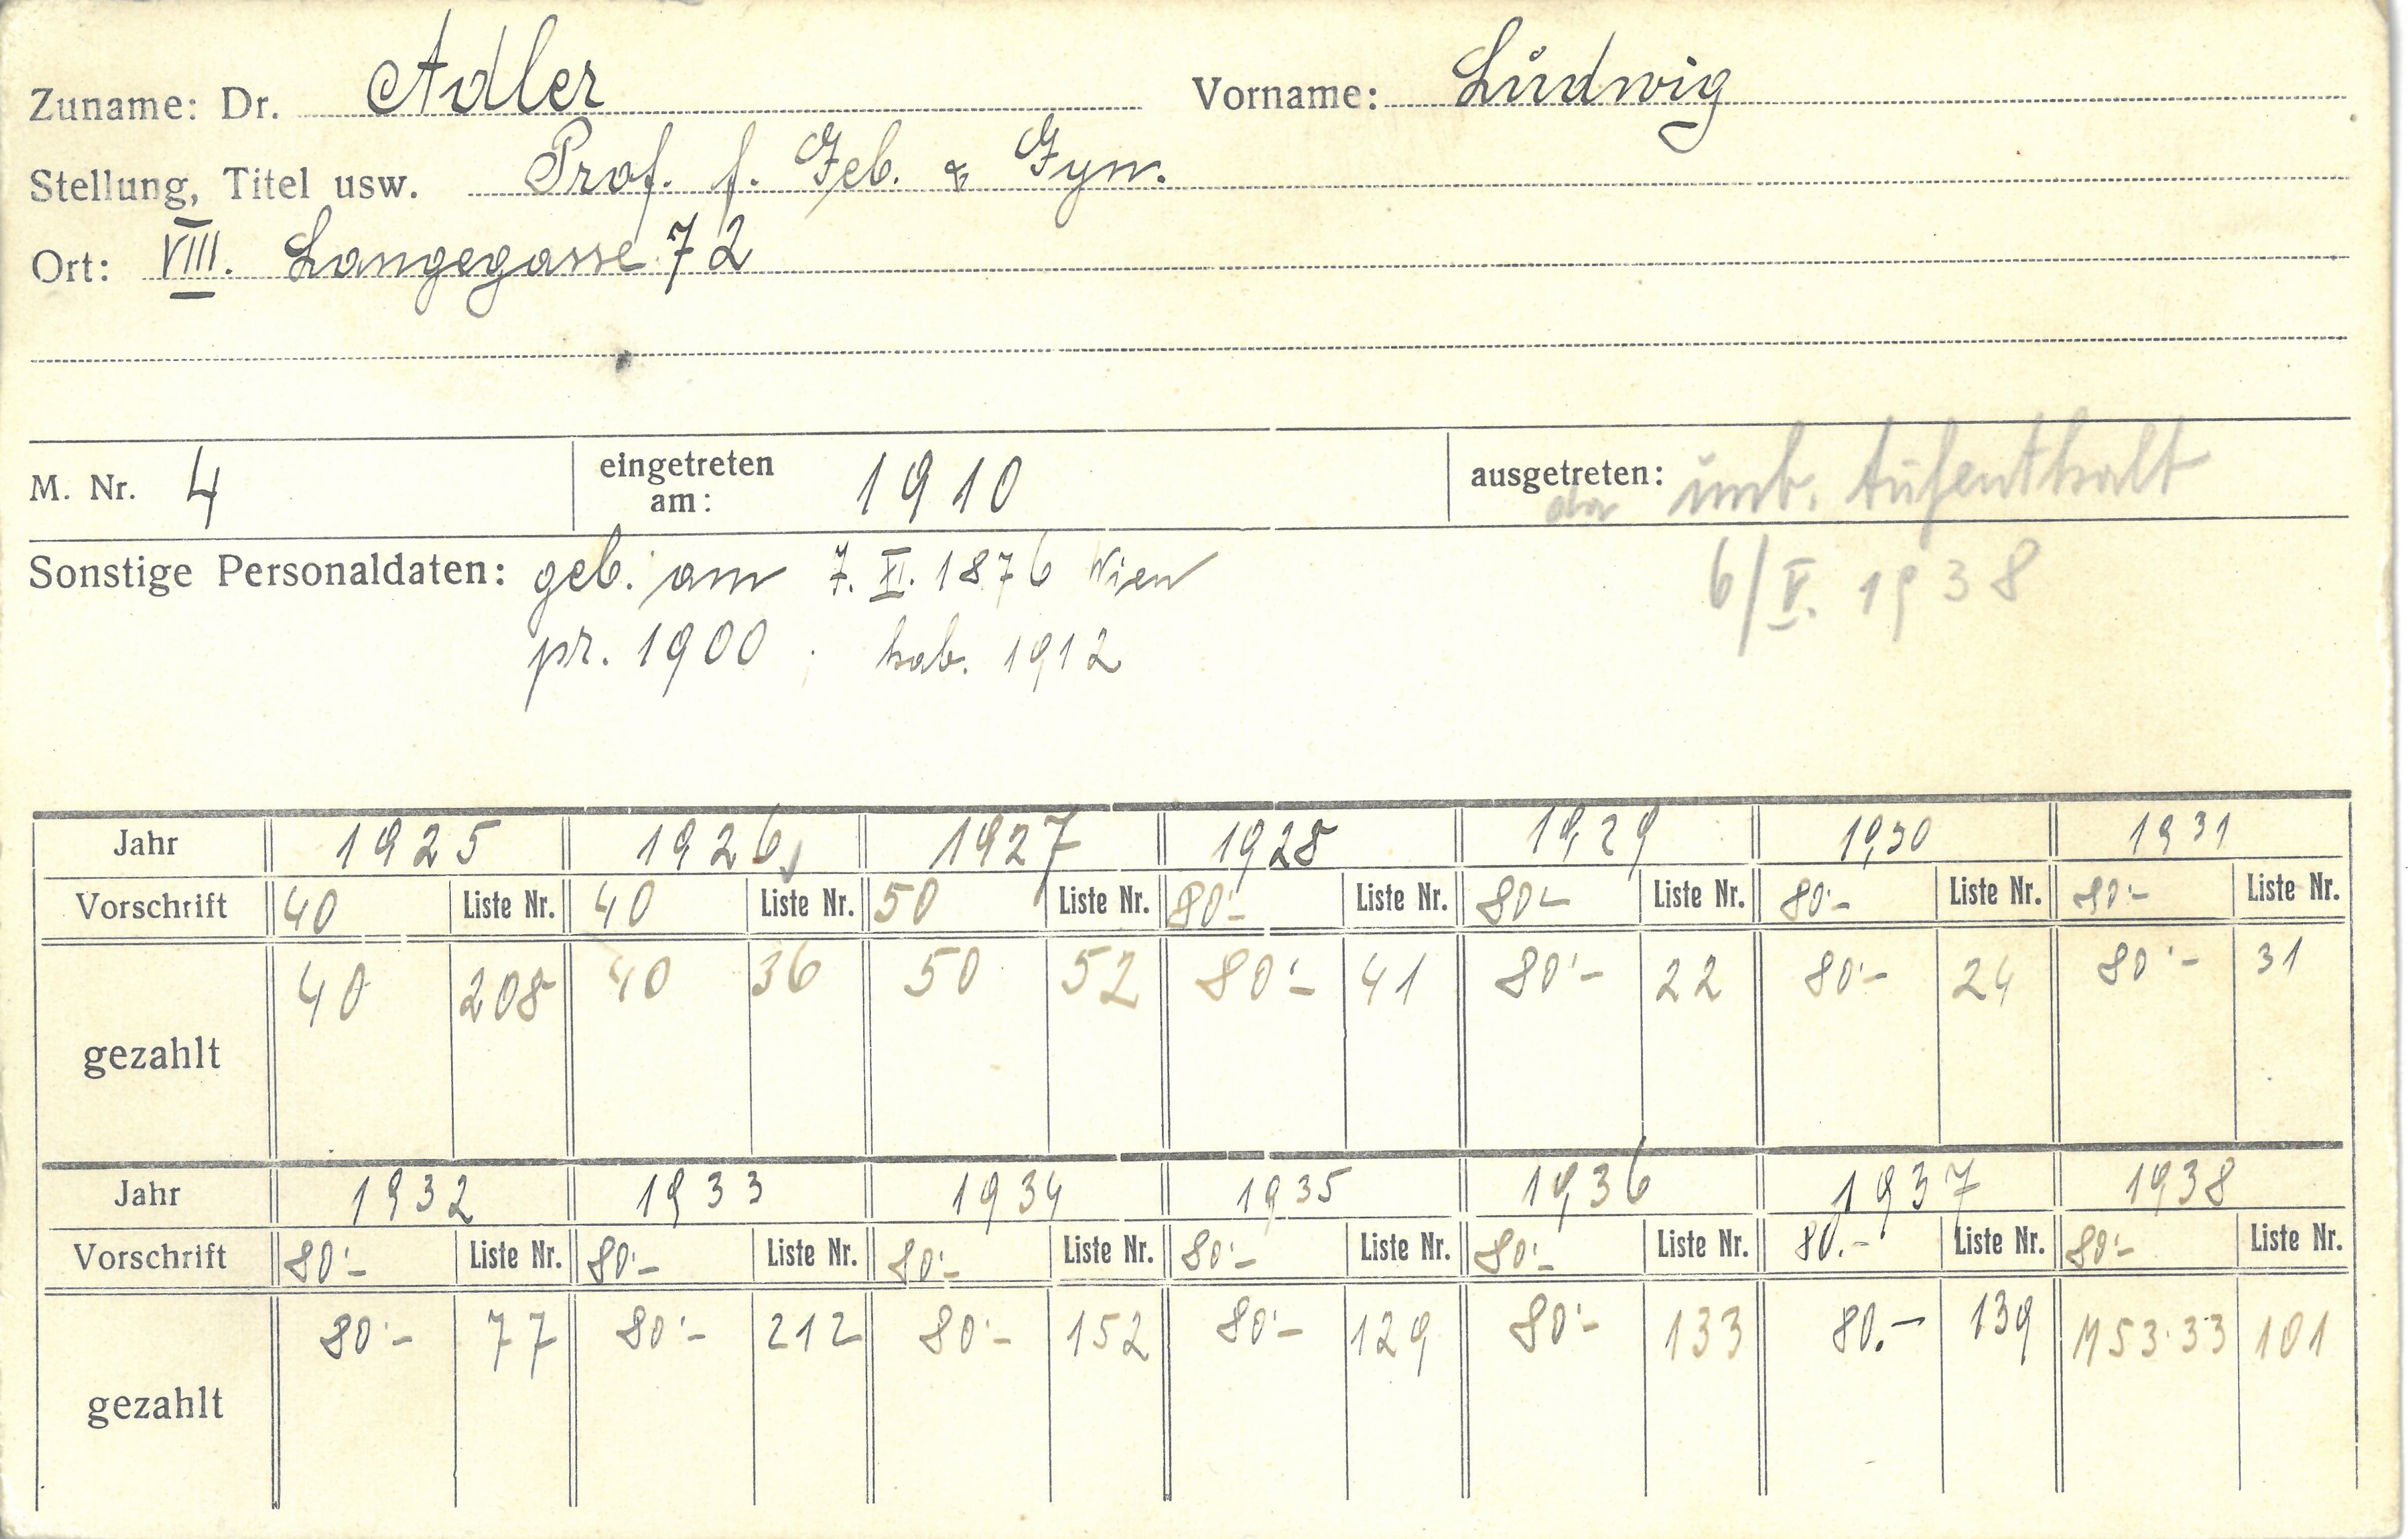 Zuname: Dr. Adler Vorname: Ludwig
Stellung, Titel usw. Prof. f. Geb. & Gyn.
Ort: VIII. Langegasse 72
M. Nr. 4 eingetreten am: 1910 ausgetreten: da unb. Aufenthalt
6/V. 1938
Sonstige Personaldaten: geb. am 7. XI. 1876 Wien
pr. 1900 hab. 1912
Jahr 1925 1926 1927 1928 1929 1930 1931
Vorschrift 40 Liste Nr. 40 Liste Nr. 50 Liste Nr. 80·- Liste Nr. 80- Liste Nr. 80·- Liste Nr. 80·- Liste Nr.
gezahlt 40 208 40 36 50 52 80·- 41 80·- 22 80·- 24 80·- 31
Jahr 1932 1933 1934 1935 1936 1937 1938
Vorschrift 80·- Liste Nr. 80·- Liste Nr. 80·- Liste Nr. 80·- Liste Nr. 80·- Liste Nr. 80.- Liste Nr. 80·- Liste Nr.
gezahlt 80·- 77 80·- 212 80·- 152 80·- 129 80·- 133 80.- 139 M 53·33 101